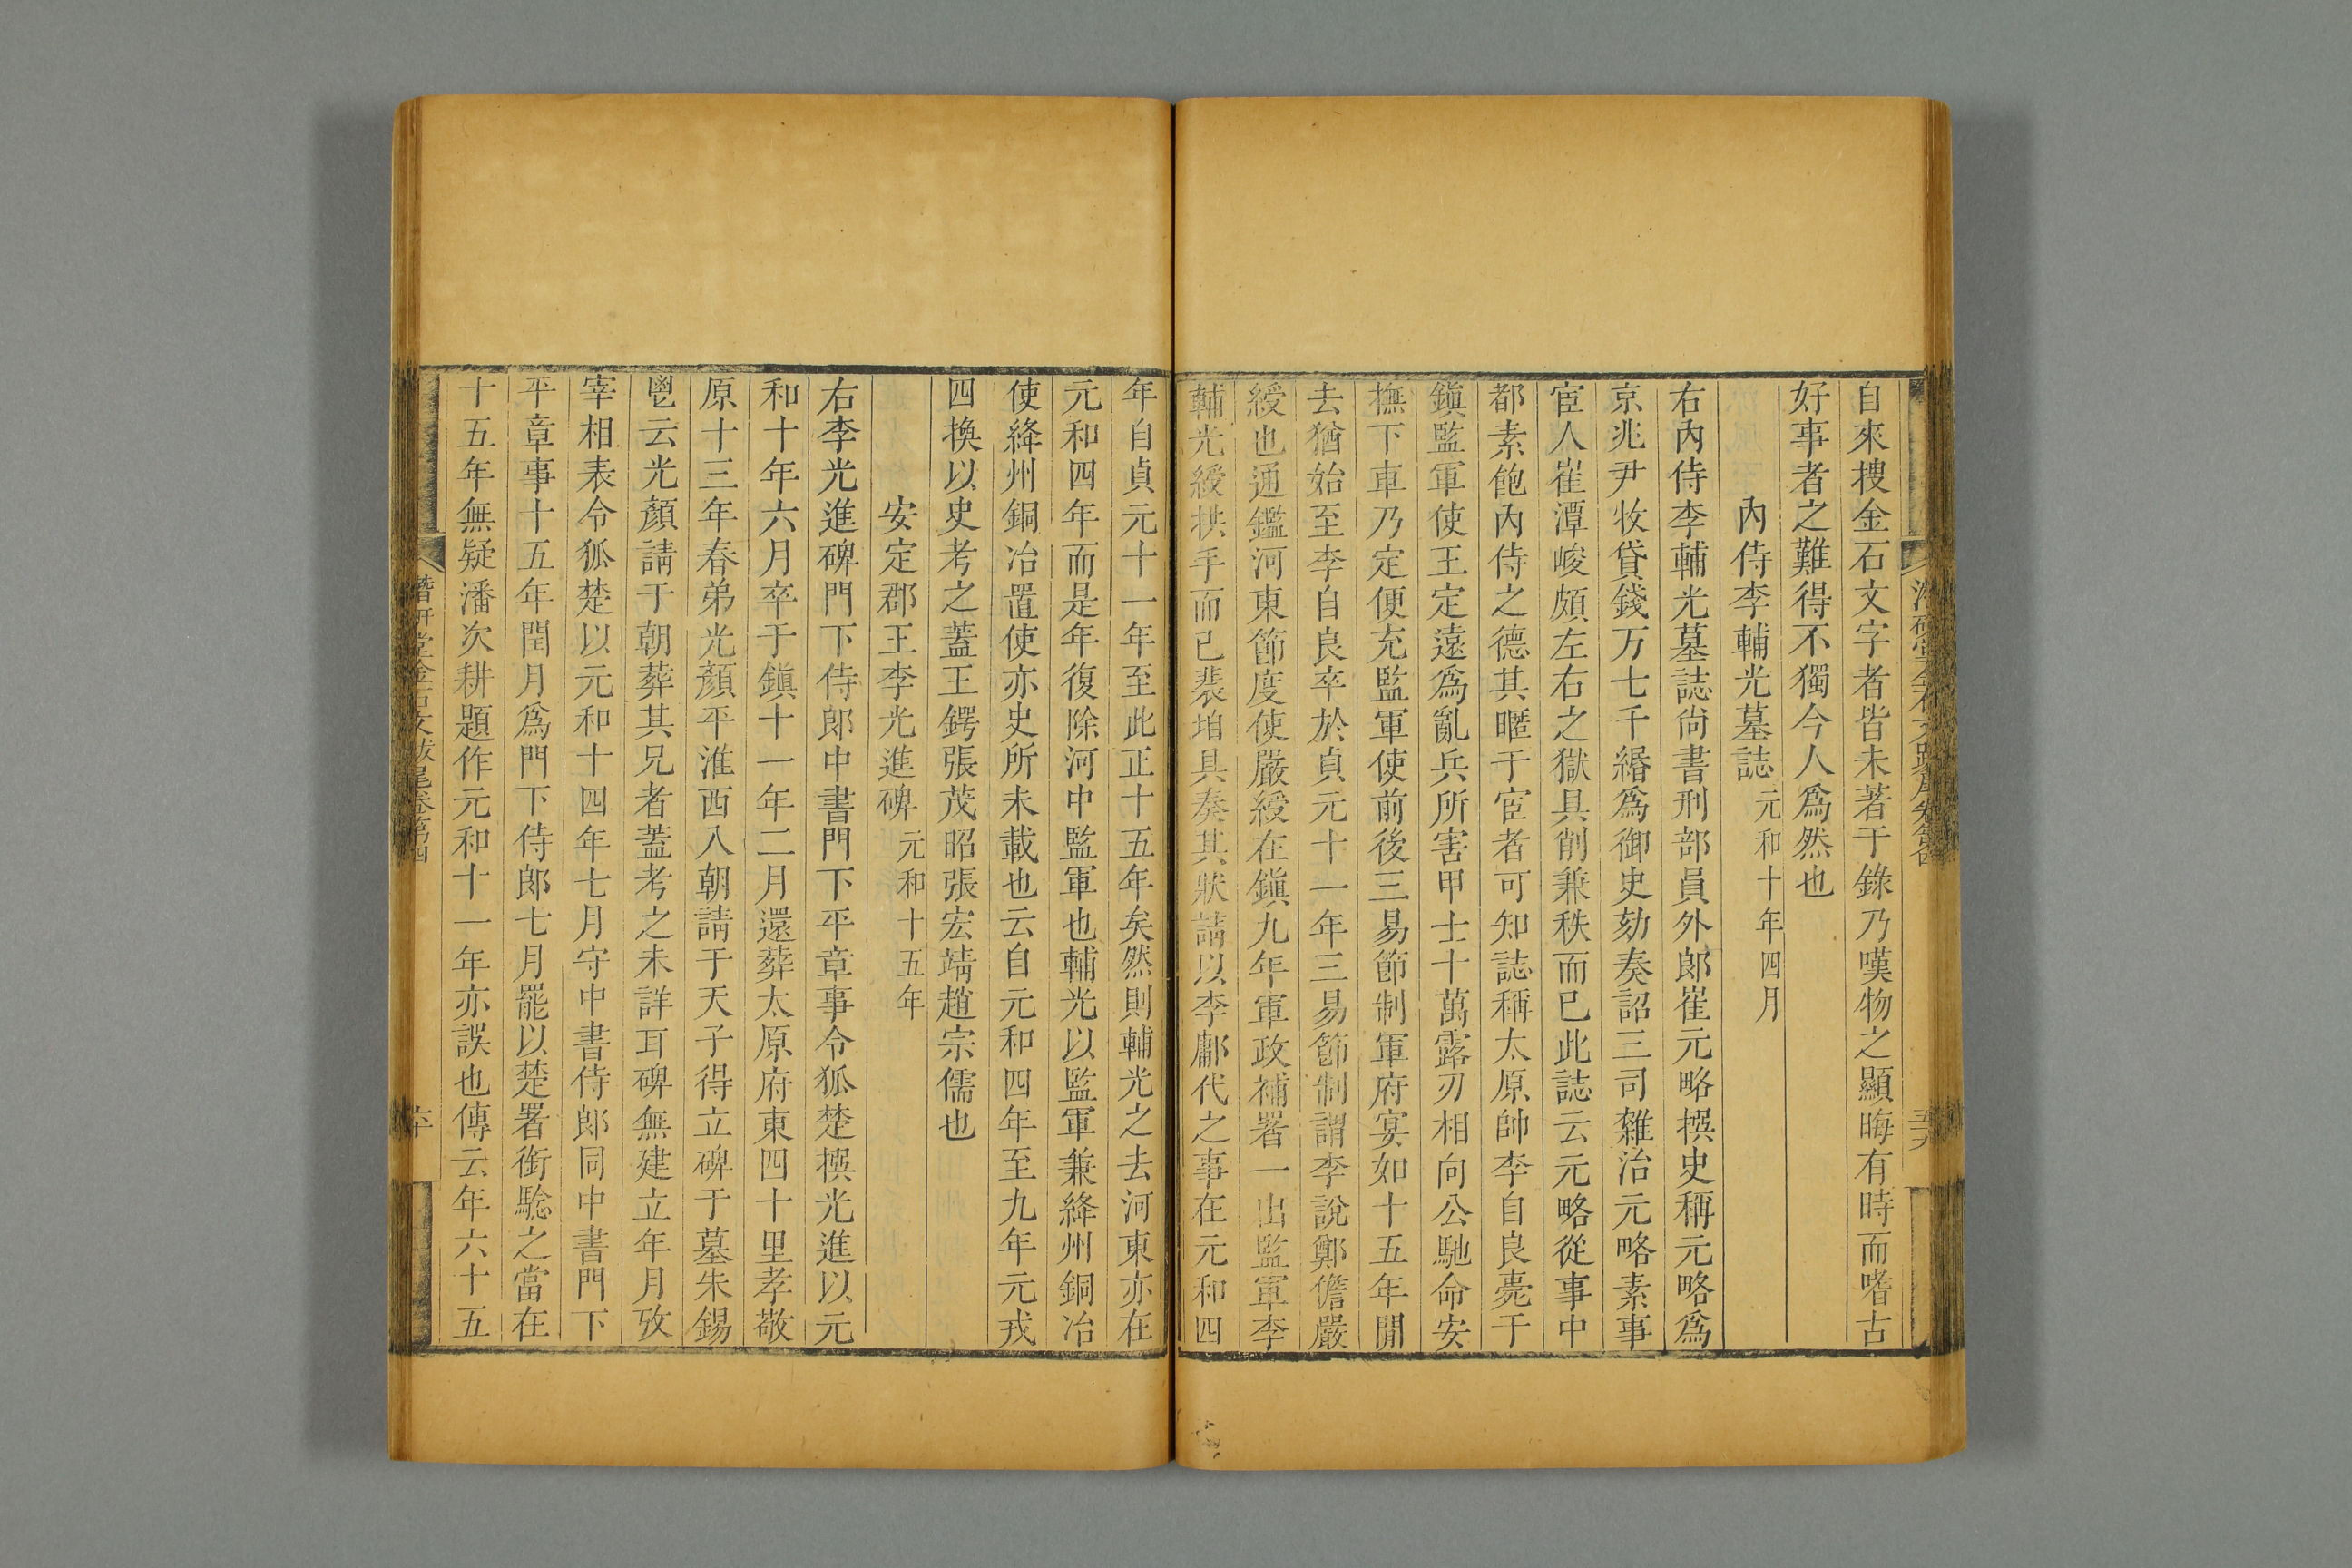 自來搜金石文字者皆未著于錄乃嘆物之顯晦有時而嗜古
好事者之難得不獨今人爲然也
內侍李輔光墓誌元和十年四月
右內侍李輔光墓誌尙書刑部員外郎崔元略撰史稱元略爲
京兆尹收貸錢万七千緡爲御史劾奏詔三司雜治元略素事
宦人崔潭峻頗左右之獄具削兼秩而已此誌云元略從事中
都素飽內侍之德其暱于宦者可知誌稱太原帥李自良薨于
鎭監軍使王定遠爲亂兵所害甲士十萬露刃相向公馳命安
撫下車乃定便充監軍使前後三易節制軍府宴如十五年閒
去猶始至李自良卒於貞元十一年三易節制謂李說鄭儋嚴
綬也通鑑河東節度使嚴綬在鎭九年軍政補署一出監軍李
輔光綬拱手而已裴垍具奏其狀請以李鄘代之事在元和四
年自貞元十一年至此正十五年矣然則輔光之去河東亦在
元和四年而是年復除河中監軍也輔光以監軍兼絳州銅冶
使絳州銅冶置使亦史所未載也云自元和四年至九年元戎
四換以史考之蓋王鍔張茂昭張宏靖趙宗儒也
安定郡王李光進碑元和十五年
右李光進碑門下侍郎中書門下平章事令狐楚撰光進以元
和十年六月卒于鎭十一年二月還葬太原府東四十里孝敬
原十三年春弟光顏平淮西入朝請于天子得立碑于墓朱錫
鬯云光顏請于朝葬其兄者蓋考之未詳耳碑無建立年月攷
宰相表令狐楚以元和十四年七月守中書侍郎同中書門下
平章事十五年閏月爲門下侍郎七月罷以楚署銜驗之當在
十五年無疑潘次耕題作元和十一年亦誤也傳云年六十五
潛研堂金石文跋尾卷第四
六十